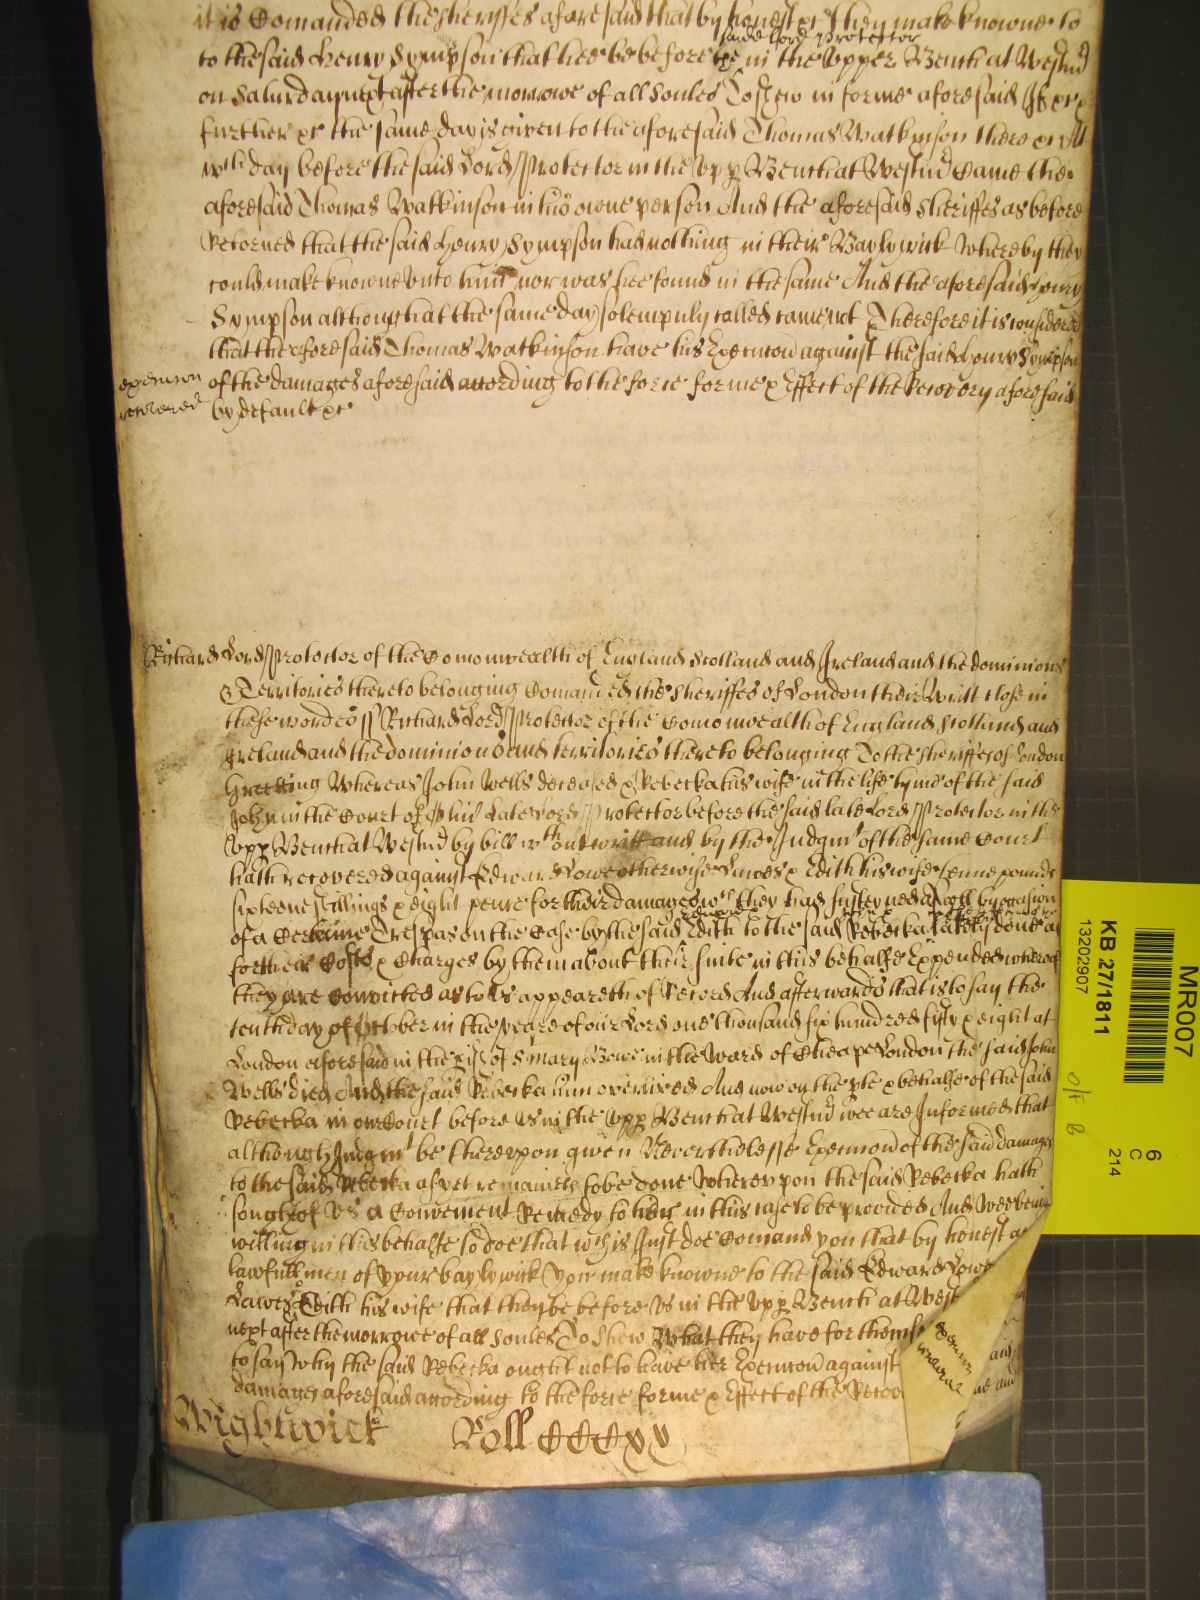 it is Comanded the sheriffes aforesaid that by honest &c they make knowne to
said Lord Protector
to the said Henry Sympson that hee be before in the Upper Bench at Westmr
on Saturday next after the morrowe of all Soules To shew in forme aforesaid If &c &
further &c the same day is given to the aforesaid Thomas Watkinson there &c At
wch day before the said Lord Protector in the Upp Bench at Westmr Came the
aforesaid Thomas Watkinson in his owne person And the aforesaid Sheriffes as before
Retorned that the said Henry Sympson had nothing in their Baylywick whereby they
could make knowne unto him nor was hee found in the same And the aforesaid Henry
Sympson although at the same day solempnly called came not Therefore it is considered
that the aforesaid Thomas Watkinson have his Execucon against the said Henry Sympson
execucon
of the damages aforesaid according to the force forme & Effect of the Recovery aforesaid
by default &c
Richard Lord Protector of the Comonwealth of England Scotland and Ireland and the dominions
& Territories thereto belonging Comanded the Sheriffes of London their Writt close in
these words ss Richard Lord Protector of the Comonwealth of England Scotland and
Ireland and the dominions and territories thereto belonging To the sheriffes of London
Greeting Whereas John Wells deceased & Rebecka his wife in the life tyme of the said
John in the Court of late Lord Protector before the said late Lord Protector in the
Upp Bench at Westmr by bill wthout writt and by the Judgmt of the same Court
hath recovered against Edward Lowe otherwise Lawes & Edith his wife Tenne pounds
sixteene shillings & eight pence for their damages wch they had susteyned aswell by occasion
of a Certaine Trespas on the Case by the said Edith to the said Rebecka lately done as
for their Costs & Charges by them about their suite in this behalfe Expended whereof
they are Convicted as to us appeareth of Record And afterwards that is to say the
tenth day of October in the yeare of our Lord one thousand six hundred fifty & eight at
London aforesaid in the pish of St Mary Bowe in the Ward of Cheape London the said John
Wells died And the said Rebecka him overlived And now on the pte & behalfe of the said
Rebecka in our Court before us in the Upp Bench at Westmr wee are Informed that
although Judgmt be thereupon given Neverthelesse Execucon of the said damages
to the said Rebecka as yet remaineth to be done Whereupon the said Rebecka hath
sought of us a Convenient Remedy to her in this case to be provided And Wee being
willing in this behalfe to doe that wch is Just doe Comand you that by honest a
lawfull men of your baylywick you make knowne to the said Edward Lowe
Lawes & Edith his wife that they be before us in the Upp Bench at West
next after the morrowe of all Soules To Shew What they have for thems
to say Why the said Rebecka ought not to have her Execucon against
damages aforesaid according to the force forme & Effect of the Recov
Wightwick Roll CCCxv
MR007
KB 27/1811
13202907
6
C
214